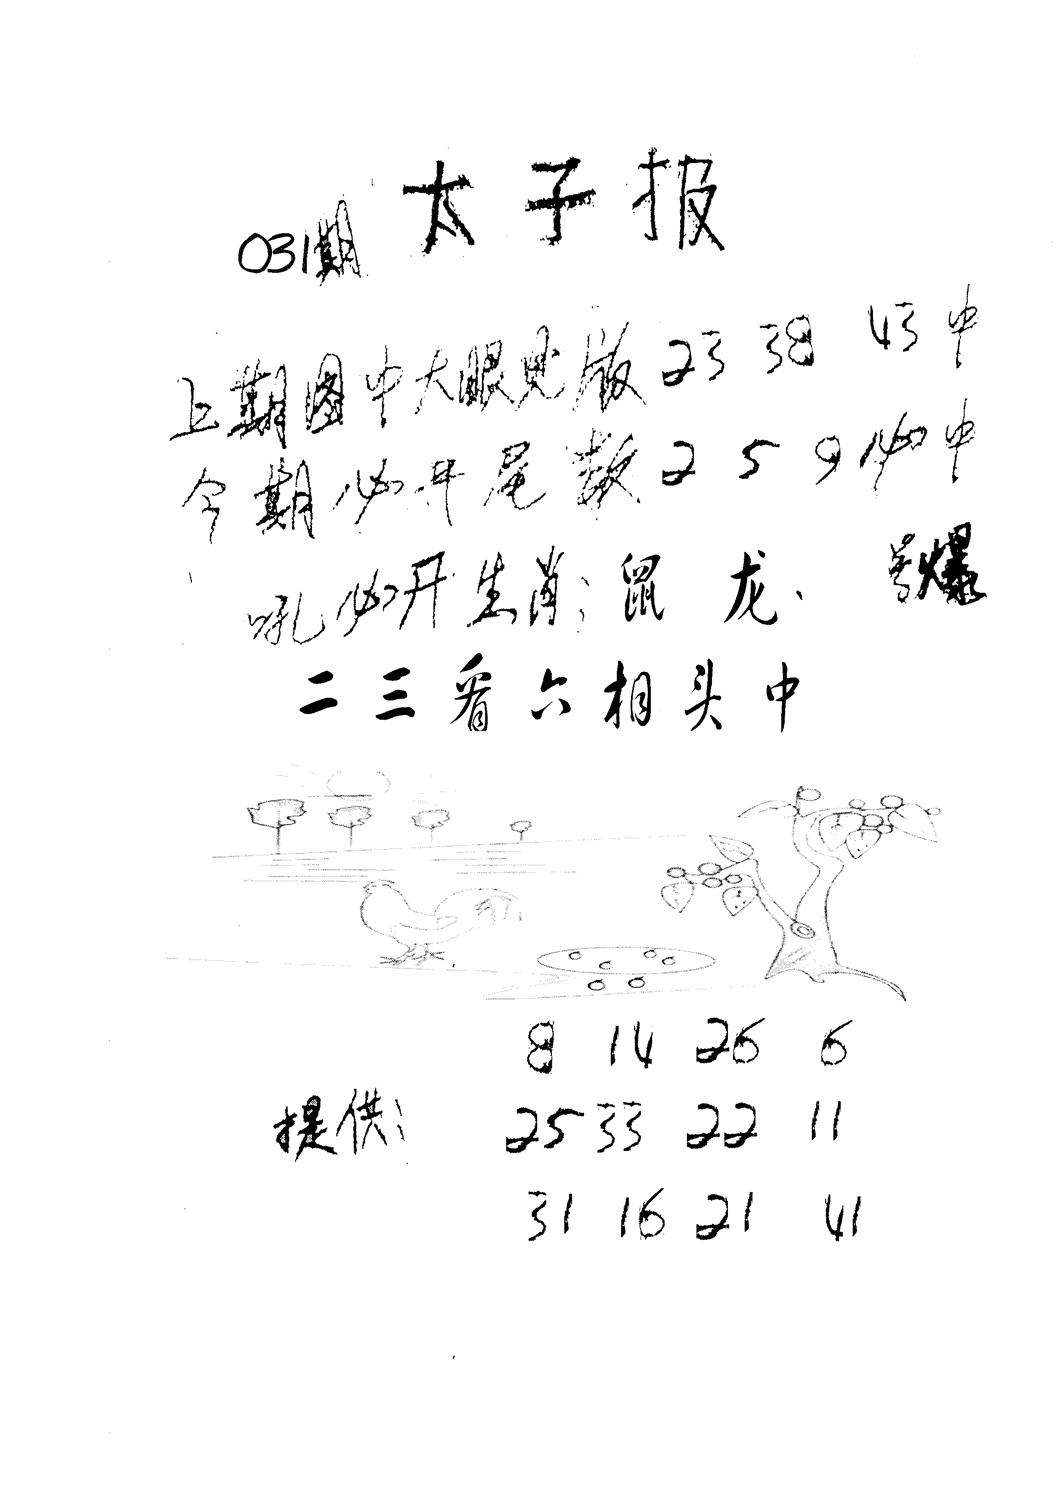 太子报
031期
上期图中大眼见版23 38 43中
今期必开尾数2 5 9必中
吼必开生肖：鼠 龙、 爆
二三看六相头中
8 14 26 6
提供： 25 33 22 11
31 16 21 41